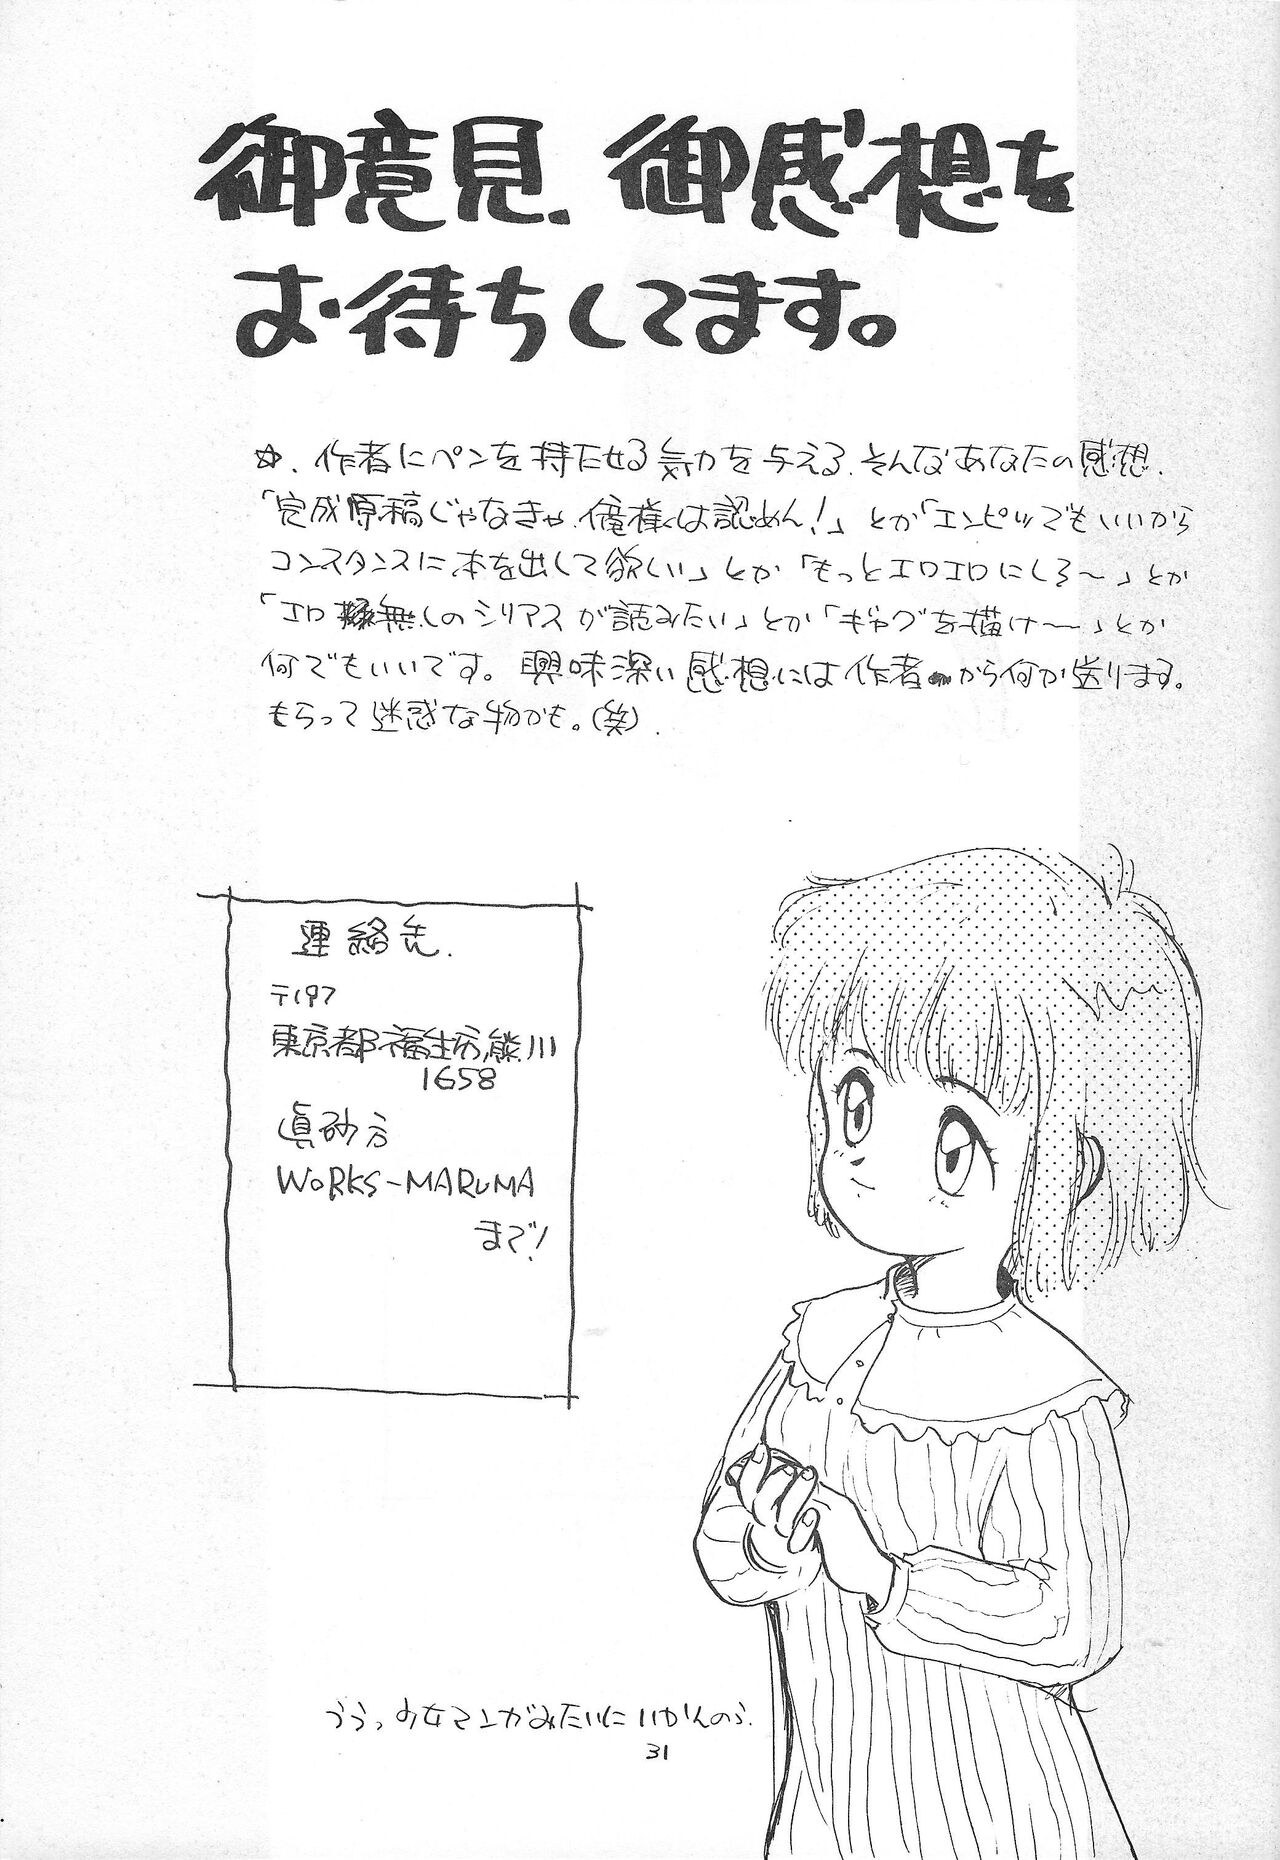 御意見、御感想を
お待ちしてます。
☆. 作者にペンを持たせる気力を与える、そんなあなたの感想、
「完成原稿じゃなきゃ、俺様は認めん!」とか「エンピツでもいいから
コンスタンスに、本を出して欲しい」とか「もっとエロエロにしろ〜」とか
「エロ無しのシリアスが読みたい」とか「ギャグを描け〜」とか
何でもいいです。興味深い感想には作者から何か送ります。
もらって迷惑な物かも。(笑).
連絡先.
〒197
東京都福生市熊川
1658
眞砂方
WORKS-MARUMA
まで!
ううっ少女マンガみたいにいかんのう.
31